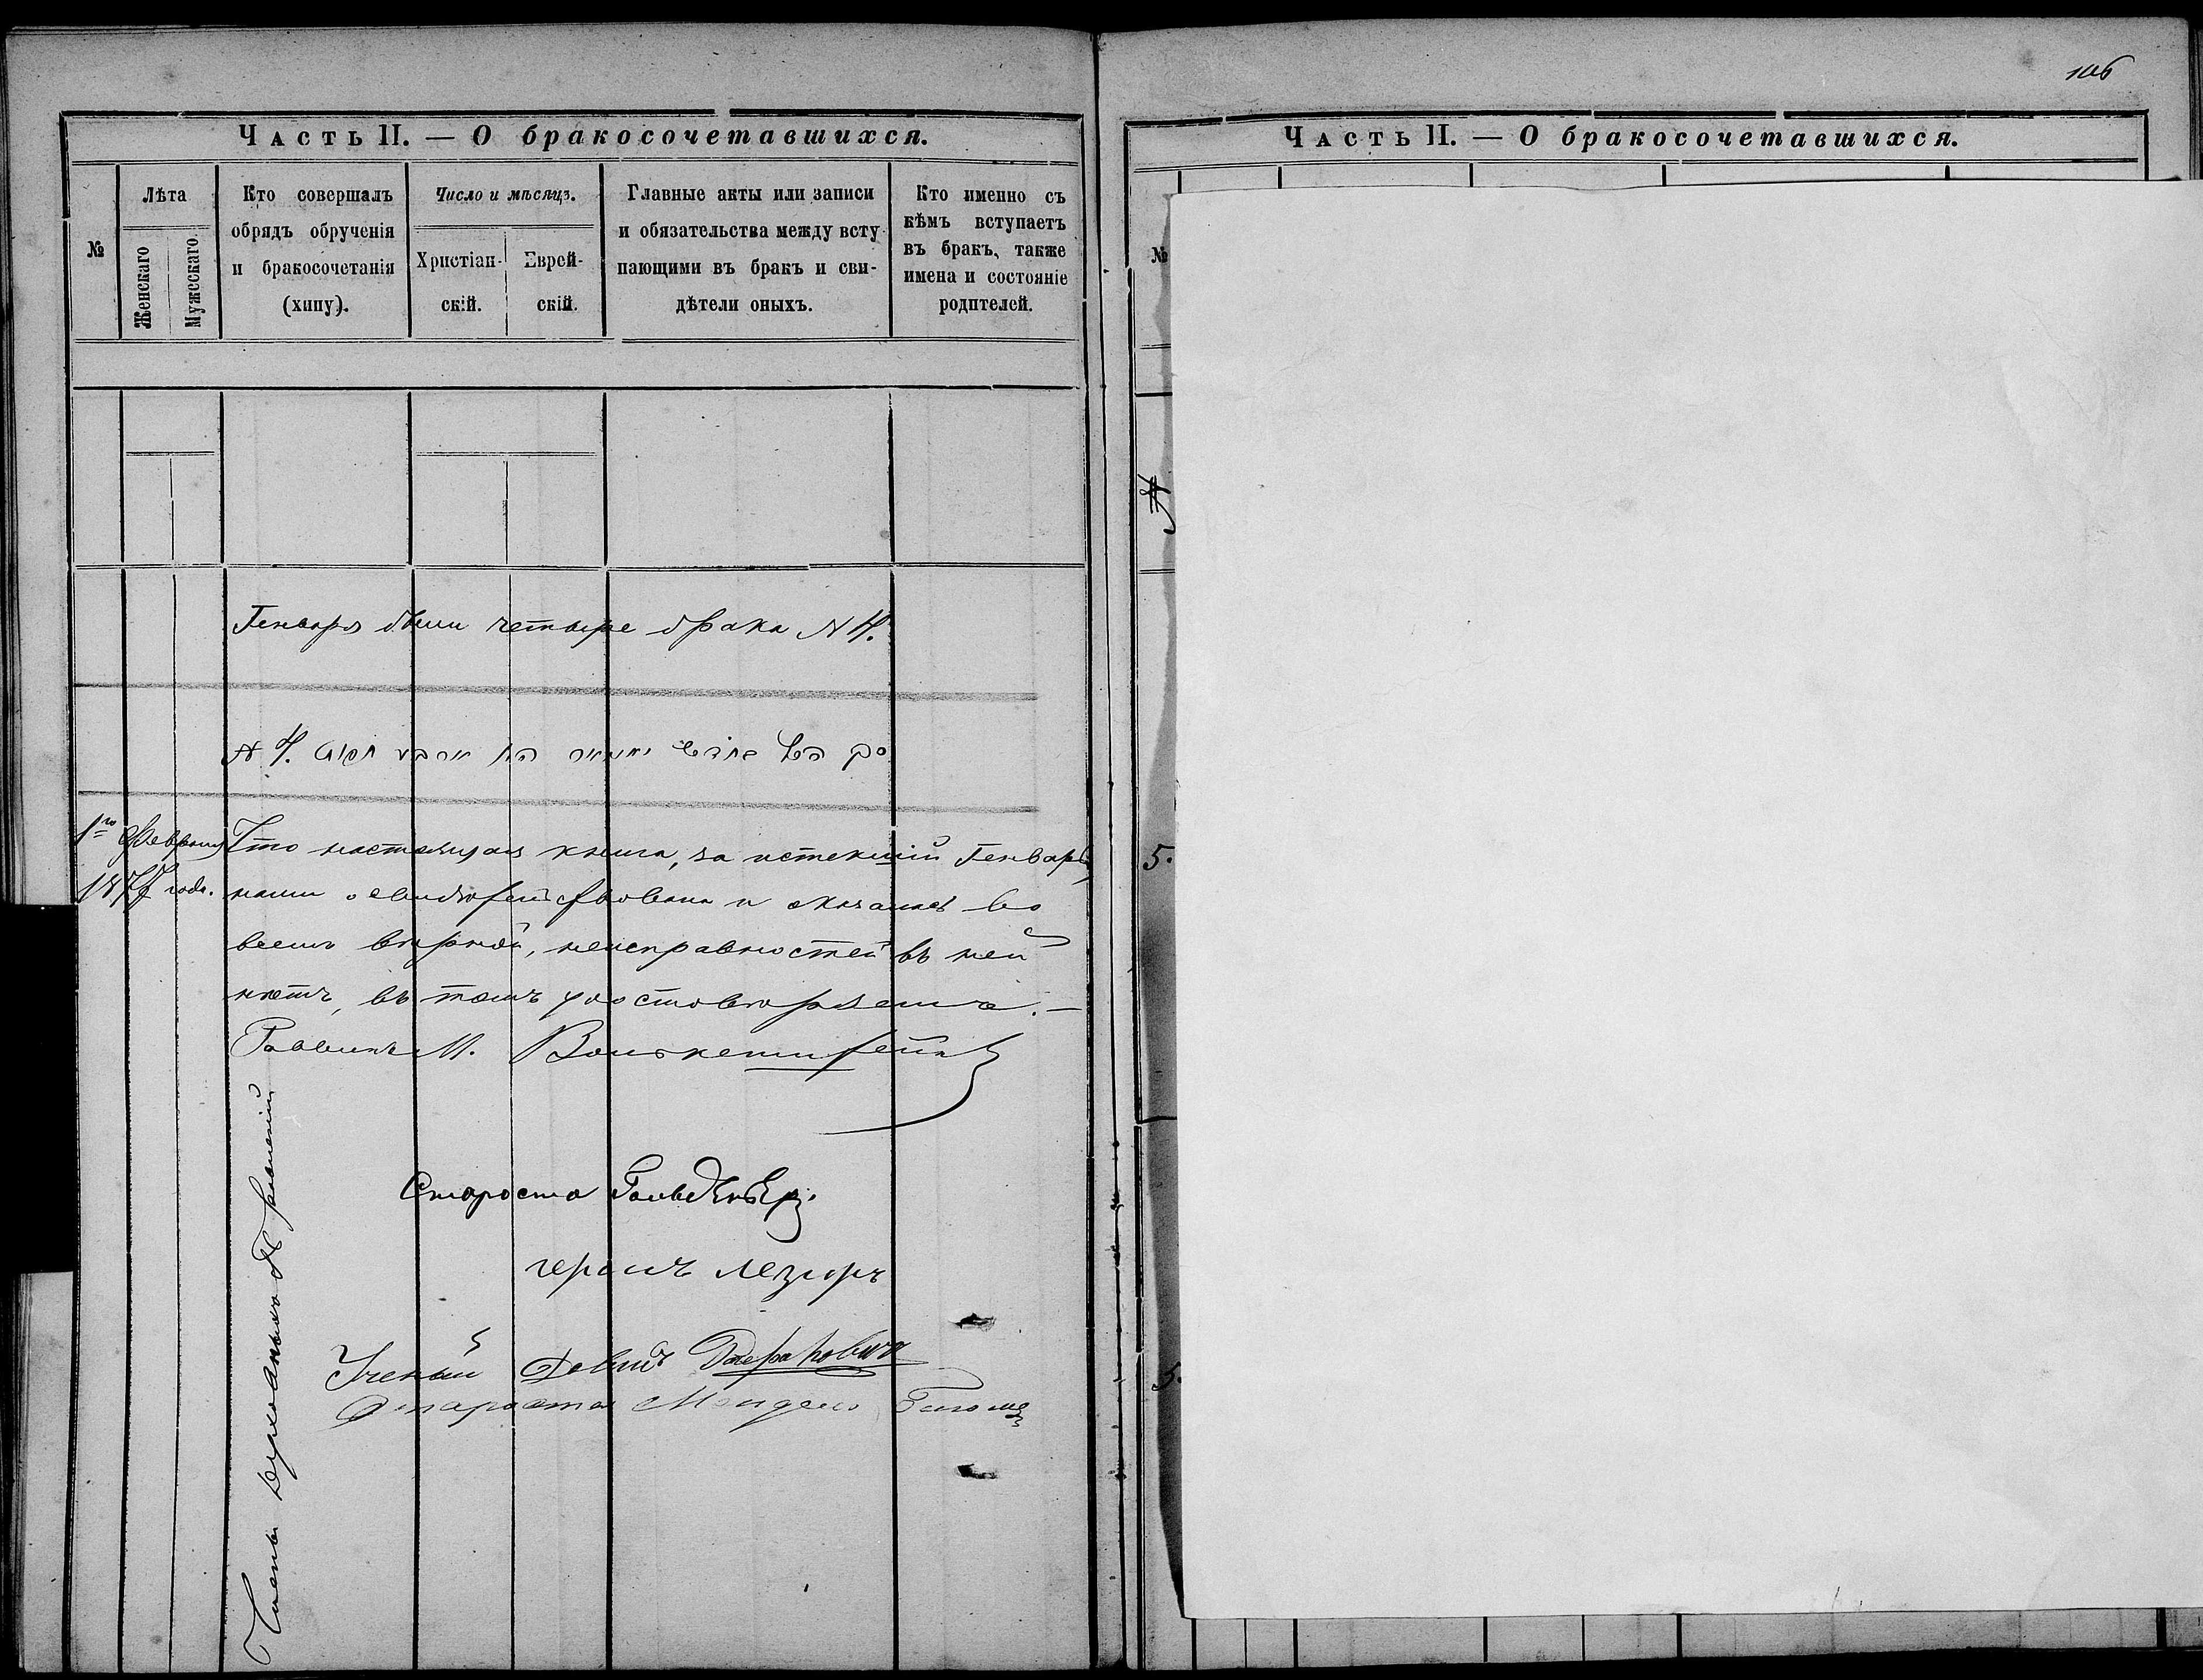 106
Часть II. — О бракосочетавшихся.
№
Лѣта
Женскаго
Мужескаго.
Кто совершалъ
обрядъ обрученія
и бракосочетанія
(хипу).
Число и мѣсяцъ.
Христіан-
скій.
Еврей-
скій.
Главные акты или записи
и обязательства между всту
пающими въ бракъ и сви-
дѣтели оныхъ.
Кто именно съ
кѣмъ вступаетъ
въ бракъ, также
имена и состояніе
родителей.
Генваря были четыре брака N 4.
N 4.
1го Февраля
1877 года.
Что настоящая книга, за истекшій Генварь
нами освидѣтельствована и оказалась во
всемъ вѣрной, неисправностей въ ней
нѣтъ, въ томъ удостовѣряемъ. —
Раввинъ М.
Староста
Ученый Давидъ
Староста
Члены духовнаго Правленія
Часть II. — О бракосочетавшихся.
№
5.
5.